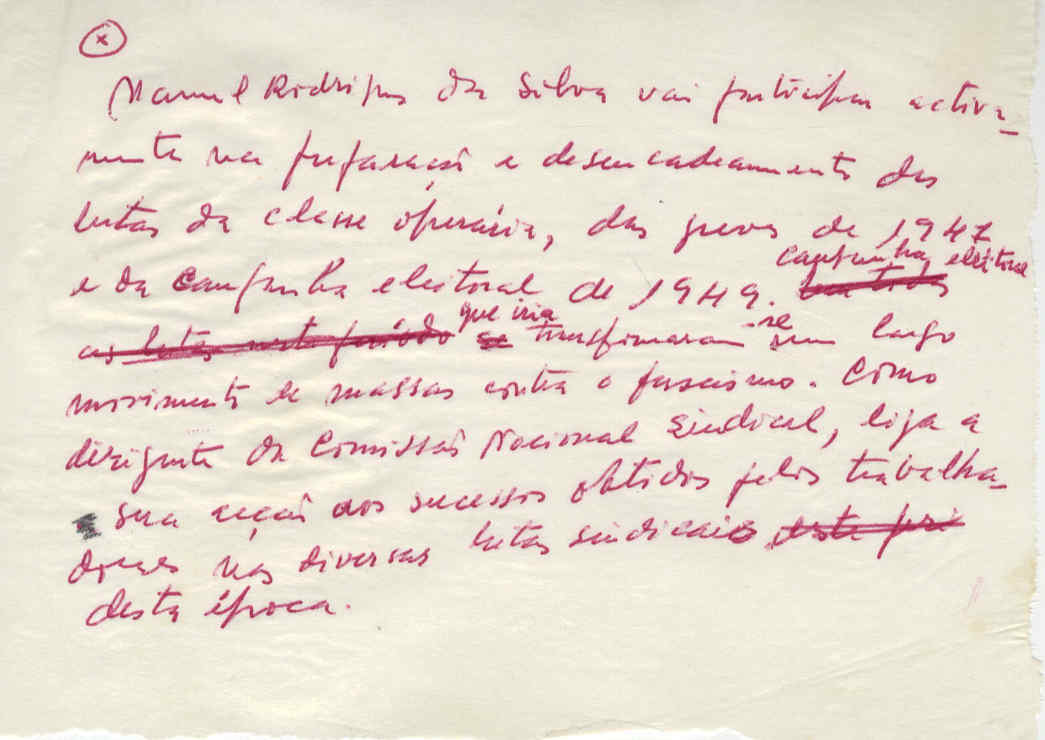 x
Manuel Rodrigues da Silva vai participar activa-
mente na preparação e desencadeamento das
lutas da classe operária, das greves de 1947
e da campanha eleitoral de 1949. campanha eleitoral
as lutas neste período que iria transformaram-se num largo
movimento de massas contra o fascismo. Como
dirigente da Comissão Nacional Sindical, liga a
sua acção aos sucessos obtidos pelos trabalha-
dores nas diversas lutas sindicais este peri
desta época.